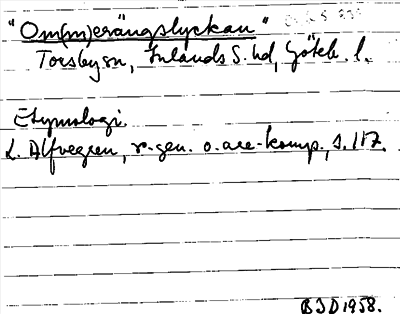 "Om(m)erängslyckan"
Torsby sn, Inlands S. hd, Göteb. l.
Etymologi.
L. Alfvegren, r-gen. o. are-komp., s. 117.
BJD 1958.